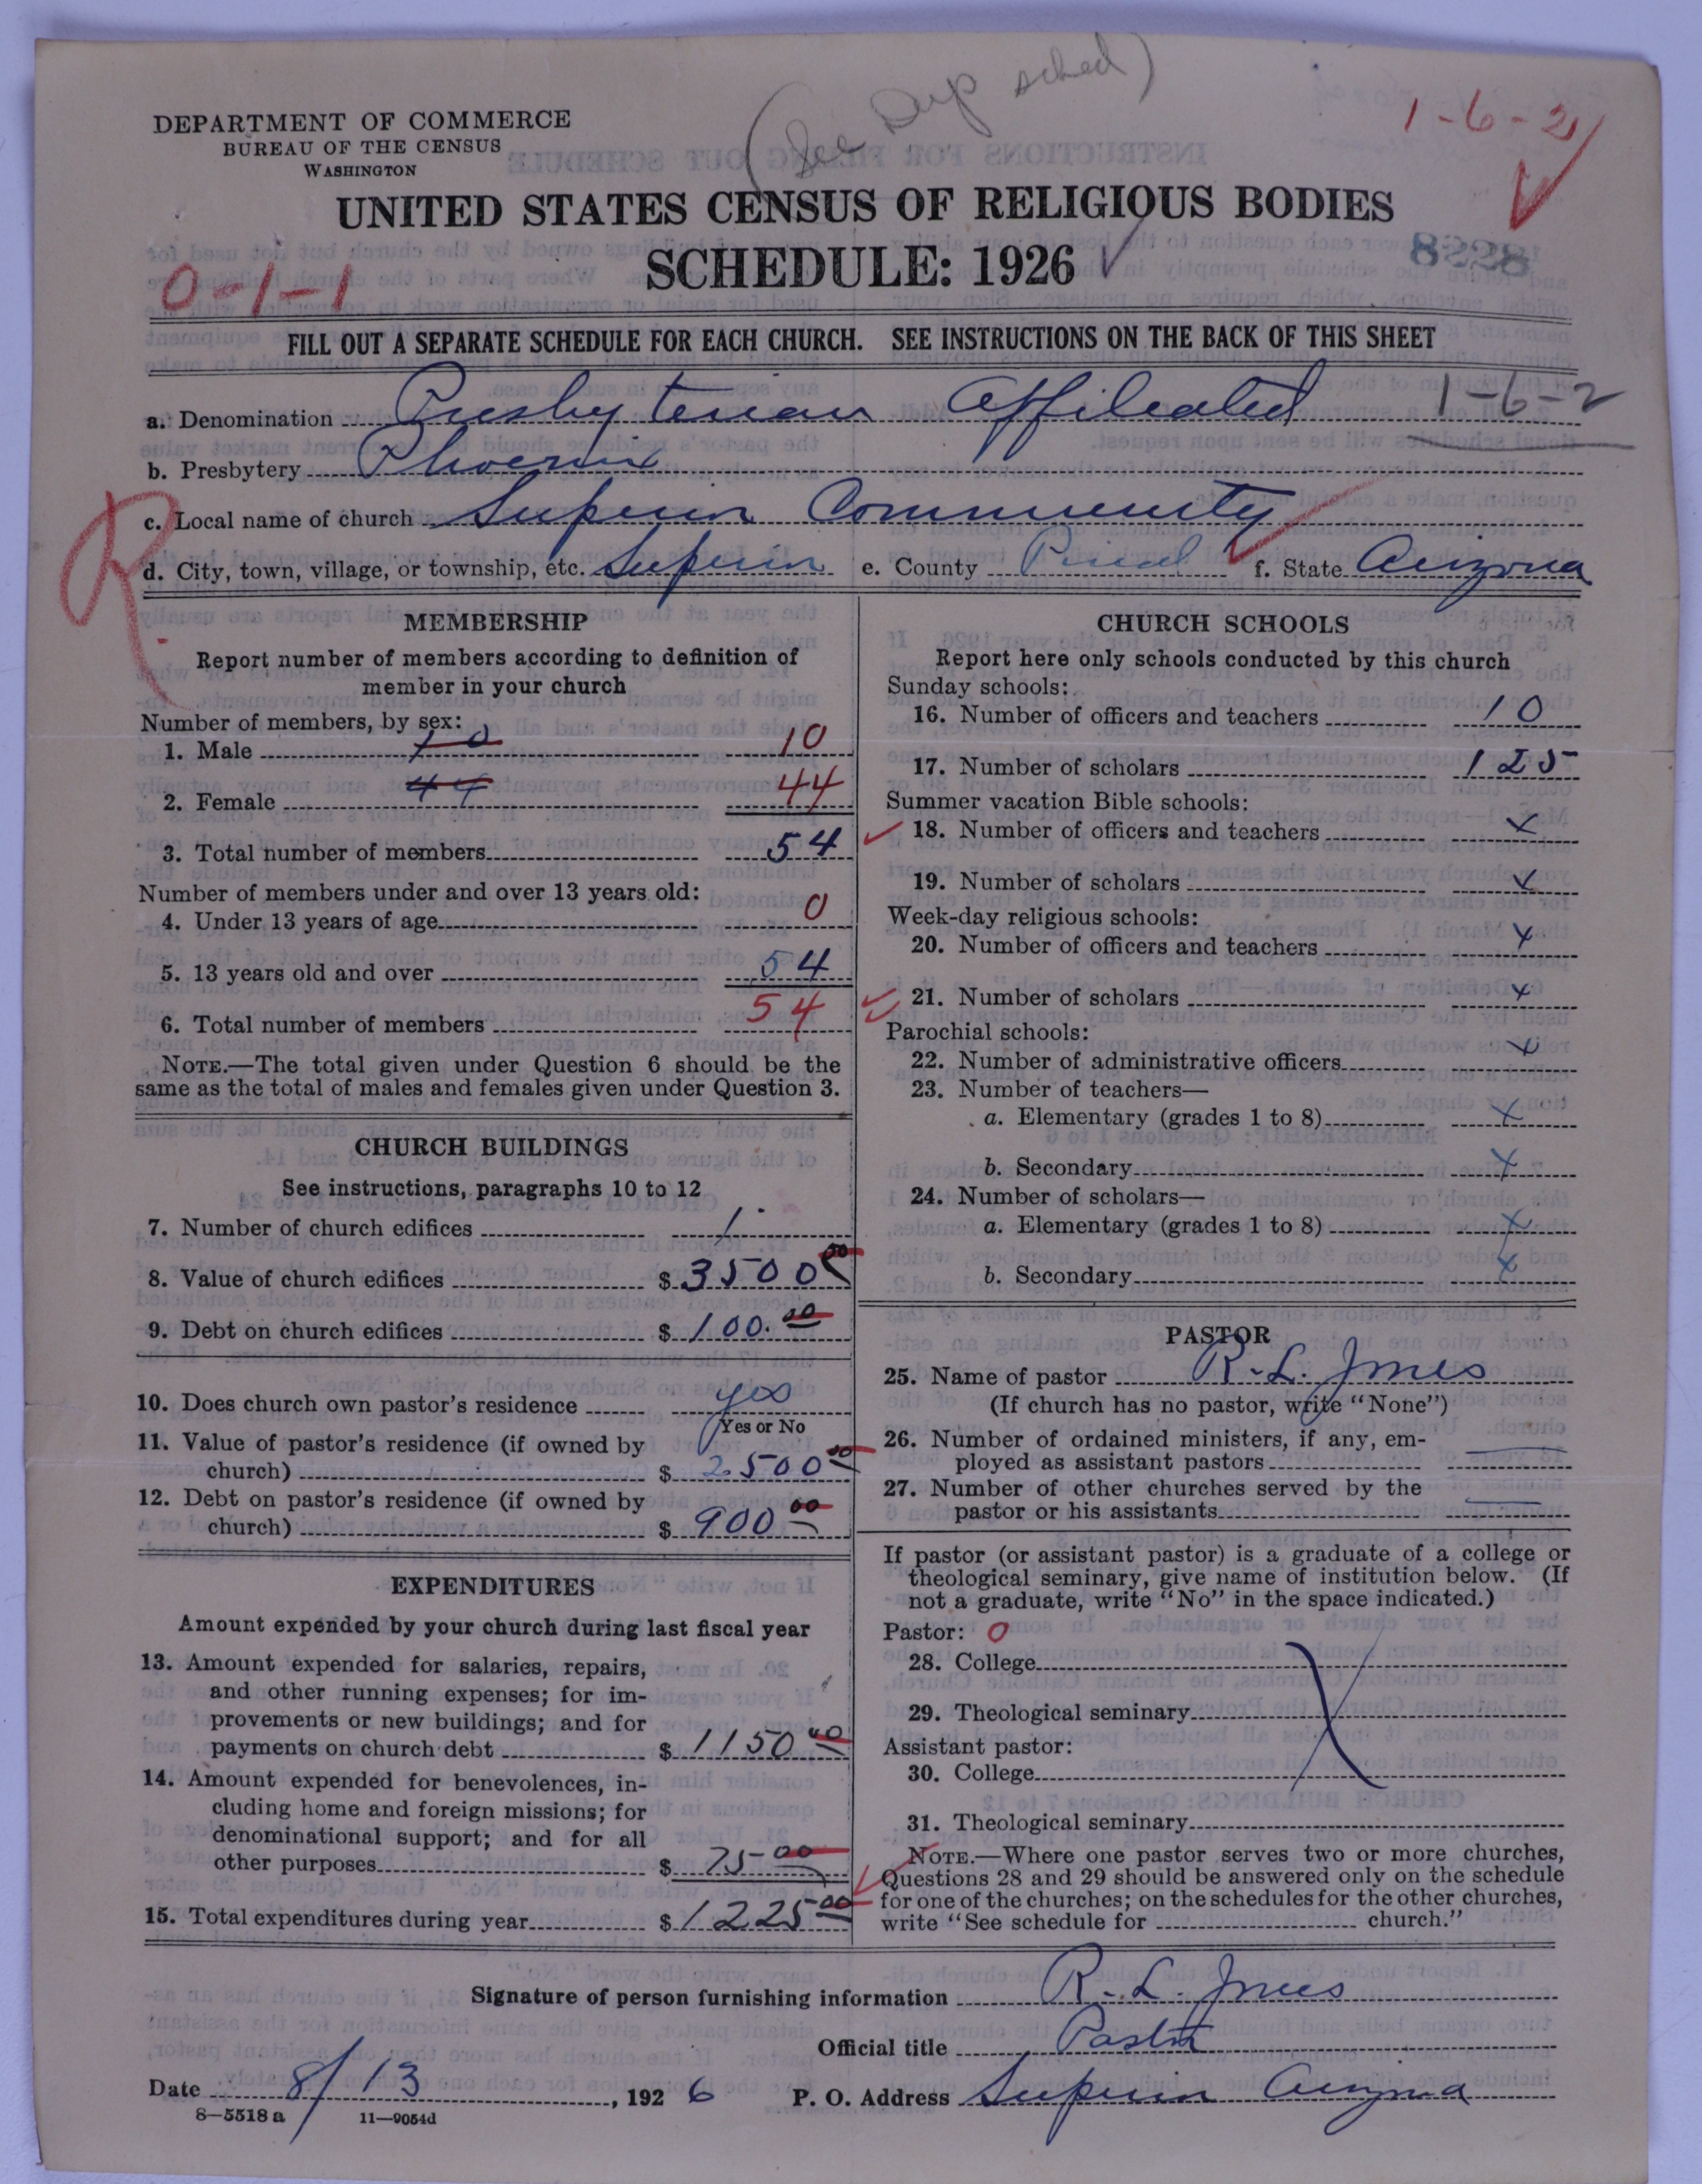 (See Dup sched)
1-6-2
DEPARTMENT OF COMMERCE
BUREAU OF THE CENSUS
WASHINGTON
UNITED STATES CENSUS OF RELIGIOUS BODIES
SCHEDULE: 1926
8228
0-1-1
FILL OUT A SEPARATE SCHEDULE FOR EACH CHURCH. SEE INSTRUCTIONS ON THE BACK OF THIS SHEET
a. Denomination Presbyterian Affileated 1-6-2
b. Presbytery Phoenix
R
c. Local name of church Superior Community
d. City, town, village, or township, etc. Superior e. County Pinal f. State Arizona
MEMBERSHIP
Report number of members according to definition of
member in your church
Number of members, by sex:
1. Male 10 10
2. Female 44 44
3. Total number of members 54
Number of members under and over 13 years old:
4. Under 13 years of age 0
5. 13 years old and over 54
6. Total number of members 54
NOTE.—The total given under Question 6 should be the
same as the total of males and females given under Question 3.
CHURCH BUILDINGS
See instructions, paragraphs 10 to 12
7. Number of church edifices 1
8. Value of church edifices $ 3500 00
9. Debt on church edifices $ 100. 00
10. Does church own pastor's residence yes
Yes or No
11. Value of pastor's residence (if owned by
church) $ 2500 00
12. Debt on pastor's residence (if owned by
church) $ 900 00
EXPENDITURES
Amount expended by your church during last fiscal year
13. Amount expended for salaries, repairs,
and other running expenses; for im-
provements or new buildings; and for
payments on church debt $ 1150 00
14. Amount expended for benevolences, in-
cluding home and foreign missions; for
denominational support; and for all
other purposes $ 75 00
15. Total expenditures during year $ 1225 00
CHURCH SCHOOLS
Report here only schools conducted by this church
Sunday schools:
16. Number of officers and teachers 10
17. Number of scholars 125
Summer vacation Bible schools:
18. Number of officers and teachers x
19. Number of scholars x
Week-day religious schools:
20. Number of officers and teachers x
21. Number of scholars x
Parochial schools:
22. Number of administrative officers x
23. Number of teachers—
a. Elementary (grades 1 to 8) x
b. Secondary x
24. Number of scholars—
a. Elementary (grades 1 to 8) x
b. Secondary x
PASTOR
25. Name of pastor R. L. Jones
(If church has no pastor, write "None")
26. Number of ordained ministers, if any, em-
ployed as assistant pastors
27. Number of other churches served by the
pastor or his assistants
If pastor (or assistant pastor) is a graduate of a college or
theological seminary, give name of institution below. (If
not a graduate, write "No" in the space indicated.)
Pastor: 0
28. College
29. Theological seminary
Assistant pastor:
30. College
31. Theological seminary
NOTE.—Where one pastor serves two or more churches,
Questions 28 and 29 should be answered only on the schedule
for one of the churches; on the schedules for the other churches,
write "See schedule for church."
Signature of person furnishing information R. L. Jones
Official title Pastor
Date 8/13, 1926 P. O. Address Superior Arizona
8—5518 a 11—9054d